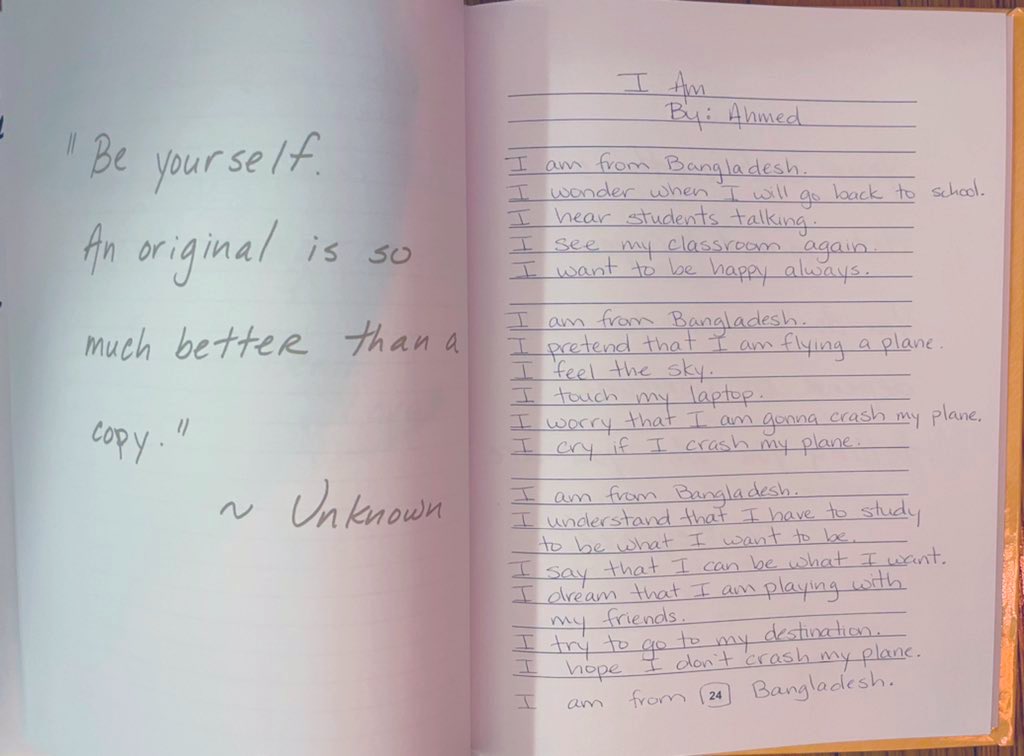 "Be yourself.
An original is so
much better than a
copy."
~ Unknown
I Am
By: Ahmed
I am from Bangladesh.
I wonder when I will go back to school.
I hear students talking.
I see my classroom again.
I want to be happy always.
I am from Bangladesh.
I pretend that I am flying a plane.
I feel the sky.
I touch my laptop.
I worry that I am gonna crash my plane.
I cry if I crash my plane.
I am from Bangladesh.
I understand that I have to study
to be what I want to be.
I say that I can be what I want.
I dream that I am playing with
my friends.
I try to go to my destination.
I hope I don't crash my plane.
I am from Bangladesh.
24